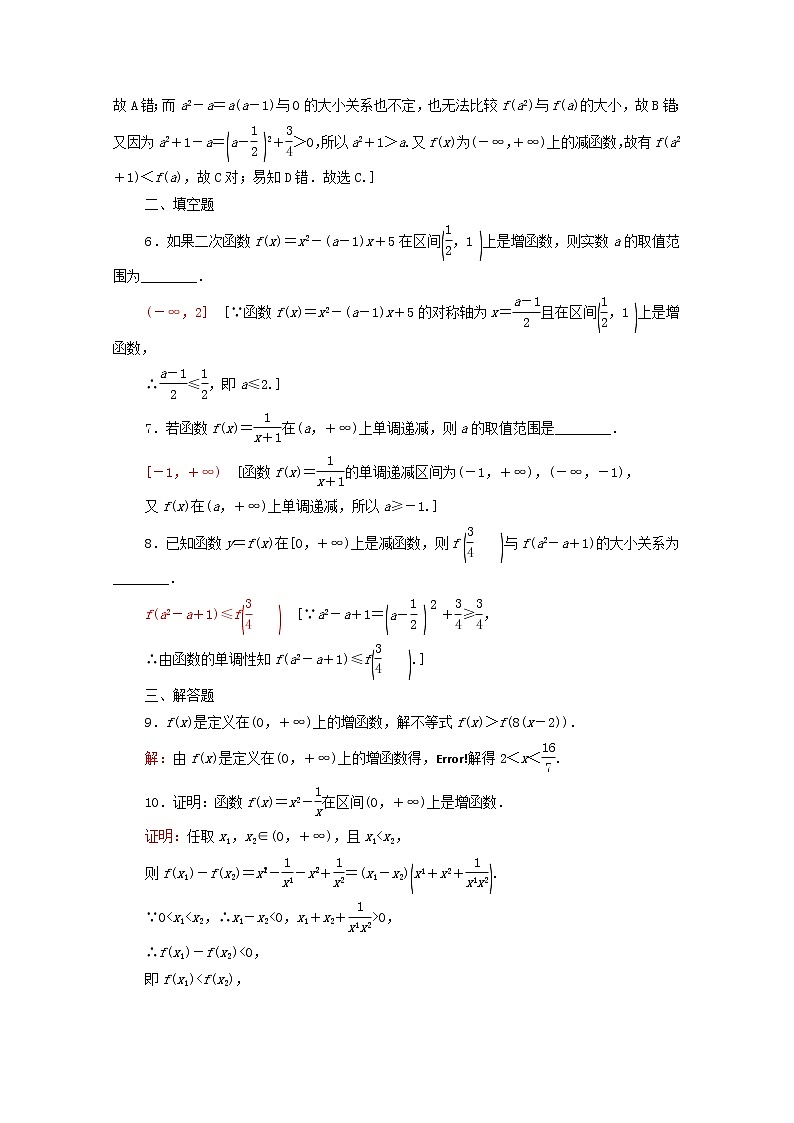 故 A 错;而 a²-a=a(a-1)与 0 的大小关系也不定,也无法比较 f(a²)与 f(a)的大小,故 B 错;
又因为 a²+1-a=(a-1/2)²+3/4>0,所以 a²+1>a.又 f(x)为(-∞,+∞)上的减函数,故有 f(a²
+1)<f(a),故 C 对;易知 D 错.故选 C.]
二、填空题
6.如果二次函数 f(x)=x²-(a-1)x+5 在区间(1/2,1)上是增函数,则实数 a 的取值范
围为________.
(-∞,2] [∵函数 f(x)=x²-(a-1)x+5 的对称轴为 x=(a-1)/2且在区间(1/2,1)上是增
函数,
∴(a-1)/2≤1/2,即 a≤2.]
7.若函数 f(x)=1/(x+1)在(a,+∞)上单调递减,则 a 的取值范围是________.
[-1,+∞) [函数 f(x)=1/(x+1)的单调递减区间为(-1,+∞),(-∞,-1),
又 f(x)在(a,+∞)上单调递减,所以 a≥-1.]
8.已知函数 y=f(x)在[0,+∞)上是减函数,则 f(3/4)与 f(a²-a+1)的大小关系为
________.
f(a²-a+1)≤f(3/4) [∵a²-a+1=(a-1/2)²+3/4≥3/4,
∴由函数的单调性知 f(a²-a+1)≤f(3/4).]
三、解答题
9.f(x)是定义在(0,+∞)上的增函数,解不等式 f(x)>f(8(x-2)).
解:由 f(x)是定义在(0,+∞)上的增函数得,Error!解得 2<x<16/7.
10.证明:函数 f(x)=x²-1/x在区间(0,+∞)上是增函数.
证明:任取 x₁,x₂∈(0,+∞),且 x₁<x₂,
则 f(x₁)-f(x₂)=x²₁-1/x₁-x²₂+1/x₂=(x₁-x₂)(x₁+x₂+1/x₁x₂).
∵0<x₁<x₂,∴x₁-x₂<0,x₁+x₂+1/x₁x₂>0,
∴f(x₁)-f(x₂)<0,
即 f(x₁)<f(x₂),